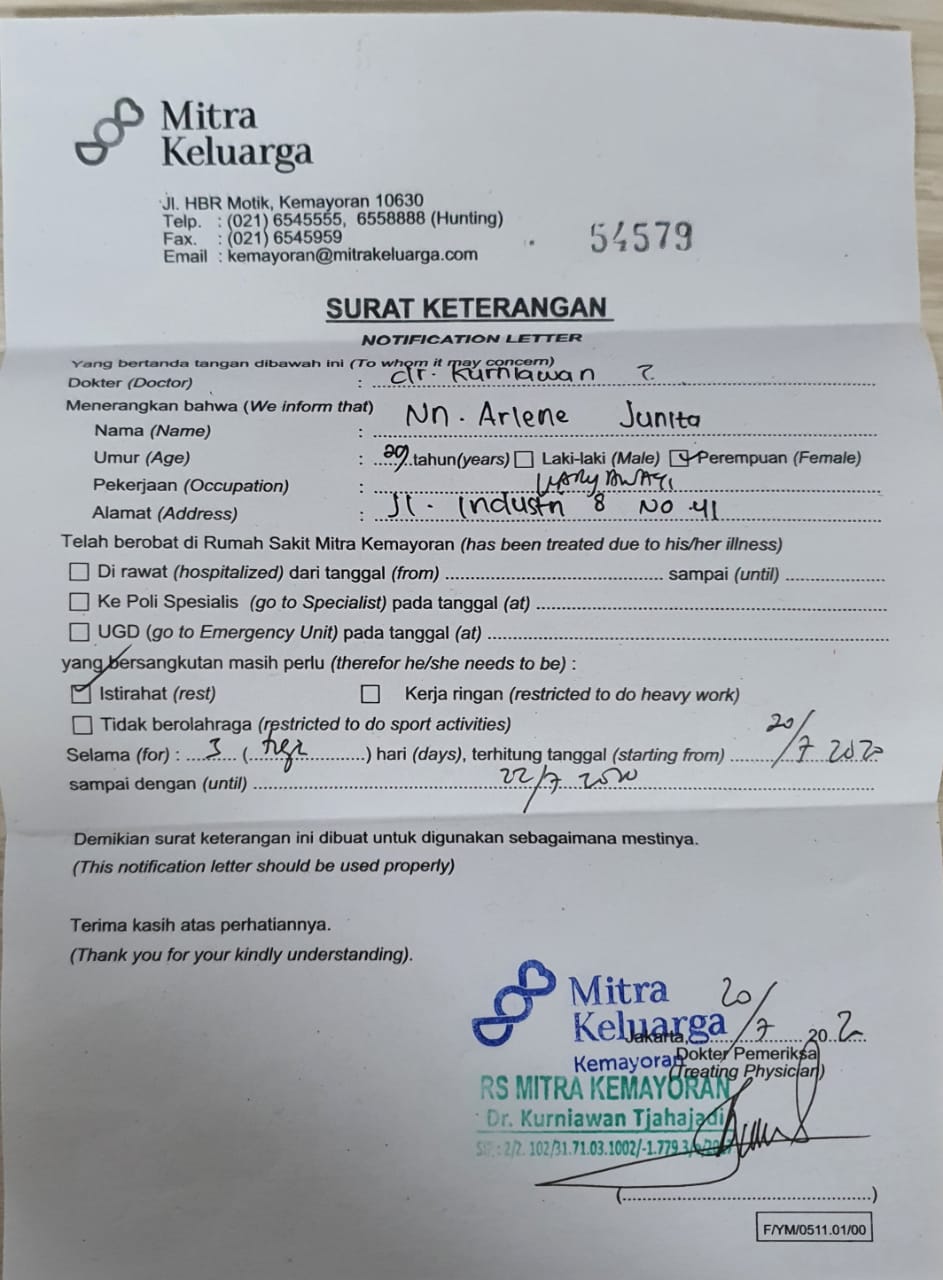 Mitra
Keluarga
Jl. HBR Motik, Kemayoran 10630
Telp. : (021) 6545555, 6558888 (Hunting)
Fax. : (021) 6545959
Email : kemayoran@mitrakeluarga.com
54579
SURAT KETERANGAN
NOTIFICATION LETTER
Yang bertanda tangan dibawah ini (To whom it may concern)
Dokter (Doctor) : dr. Kurniawan T.
Menerangkan bahwa (We inform that)
Nama (Name) : Nn. Arlene Junita
Umur (Age) : tahun(years) Laki-laki (Male) Perempuan (Female)
Pekerjaan (Occupation) : KARYAWATI
Alamat (Address) : Jl. Industri 8 No 41
Telah berobat di Rumah Sakit Mitra Kemayoran (has been treated due to his/her illness)
Di rawat (hospitalized) dari tanggal (from) sampai (until)
Ke Poli Spesialis (go to Specialist) pada tanggal (at)
UGD (go to Emergency Unit) pada tanggal (at)
yang bersangkutan masih perlu (therefor he/she needs to be) :
Istirahat (rest) Kerja ringan (restricted to do heavy work)
Tidak berolahraga (restricted to do sport activities)
Selama (for) : 3 (tiga) hari (days), terhitung tanggal (starting from) 20/7 2020
sampai dengan (until) 22/7 2020
Demikian surat keterangan ini dibuat untuk digunakan sebagaimana mestinya.
(This notification letter should be used properly)
Terima kasih atas perhatiannya.
(Thank you for your kindly understanding).
Mitra
Keluarga
Kemayoran
Jakarta, 20/7 20 2
Dokter Pemeriksa
(Treating Physician)
RS MITRA KEMAYORAN
Dr. Kurniawan Tjahajadi
SIP. : 2/2. 102/31.71.03.1002/-1.779.3/
(..........)
F/YM/0511.01/00